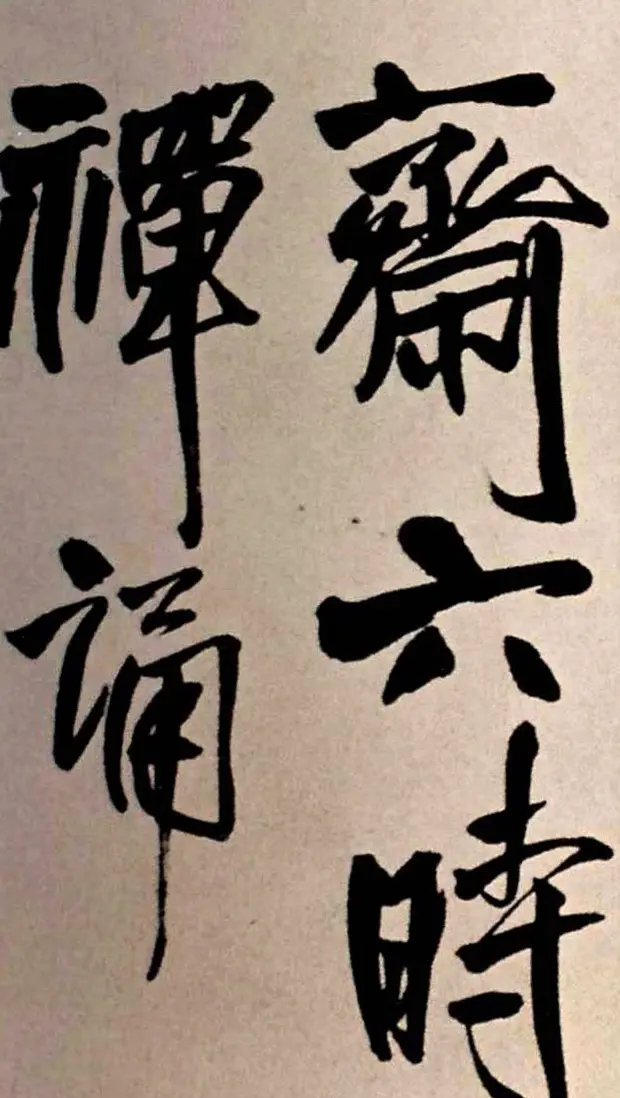 齋六時
禪誦